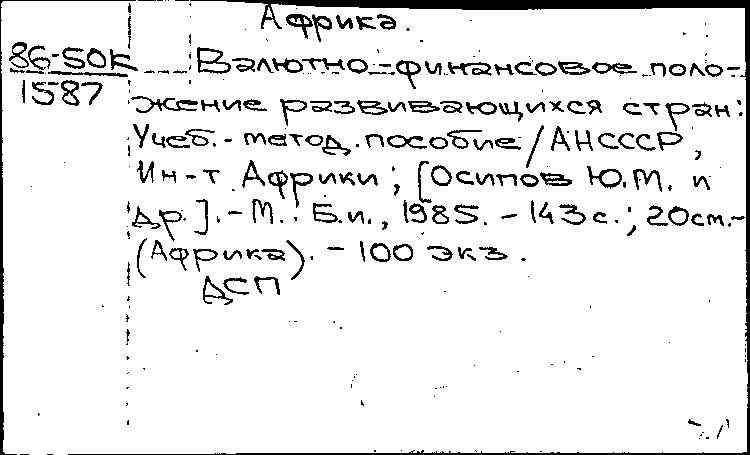 Африка.
86-50К Валютно-финансовое поло-
1587 жение развивающихся стран:
Учеб.-метод. пособие / АНСССР,
Ин-т Африки; [Осипов Ю.М. и
др.]. - М.: Б.и., 1985. - 143 с.; 20 см. -
(Африка). - 100 экз.
ДСП